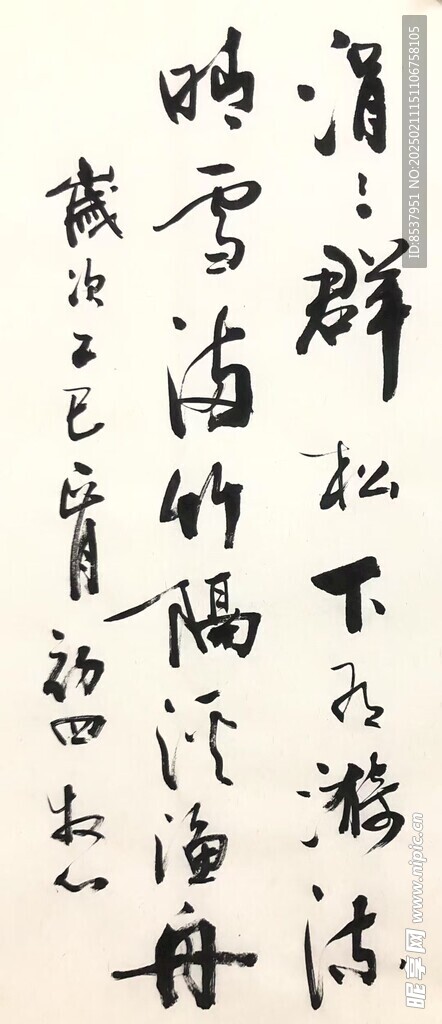 涓〻群松下有漪流
晴雪满竹隔溪渔舟
歲次乙巳正月初四牧心
ID:8537951 NO:20250211151106758105
昵享网 www.nipic.cn